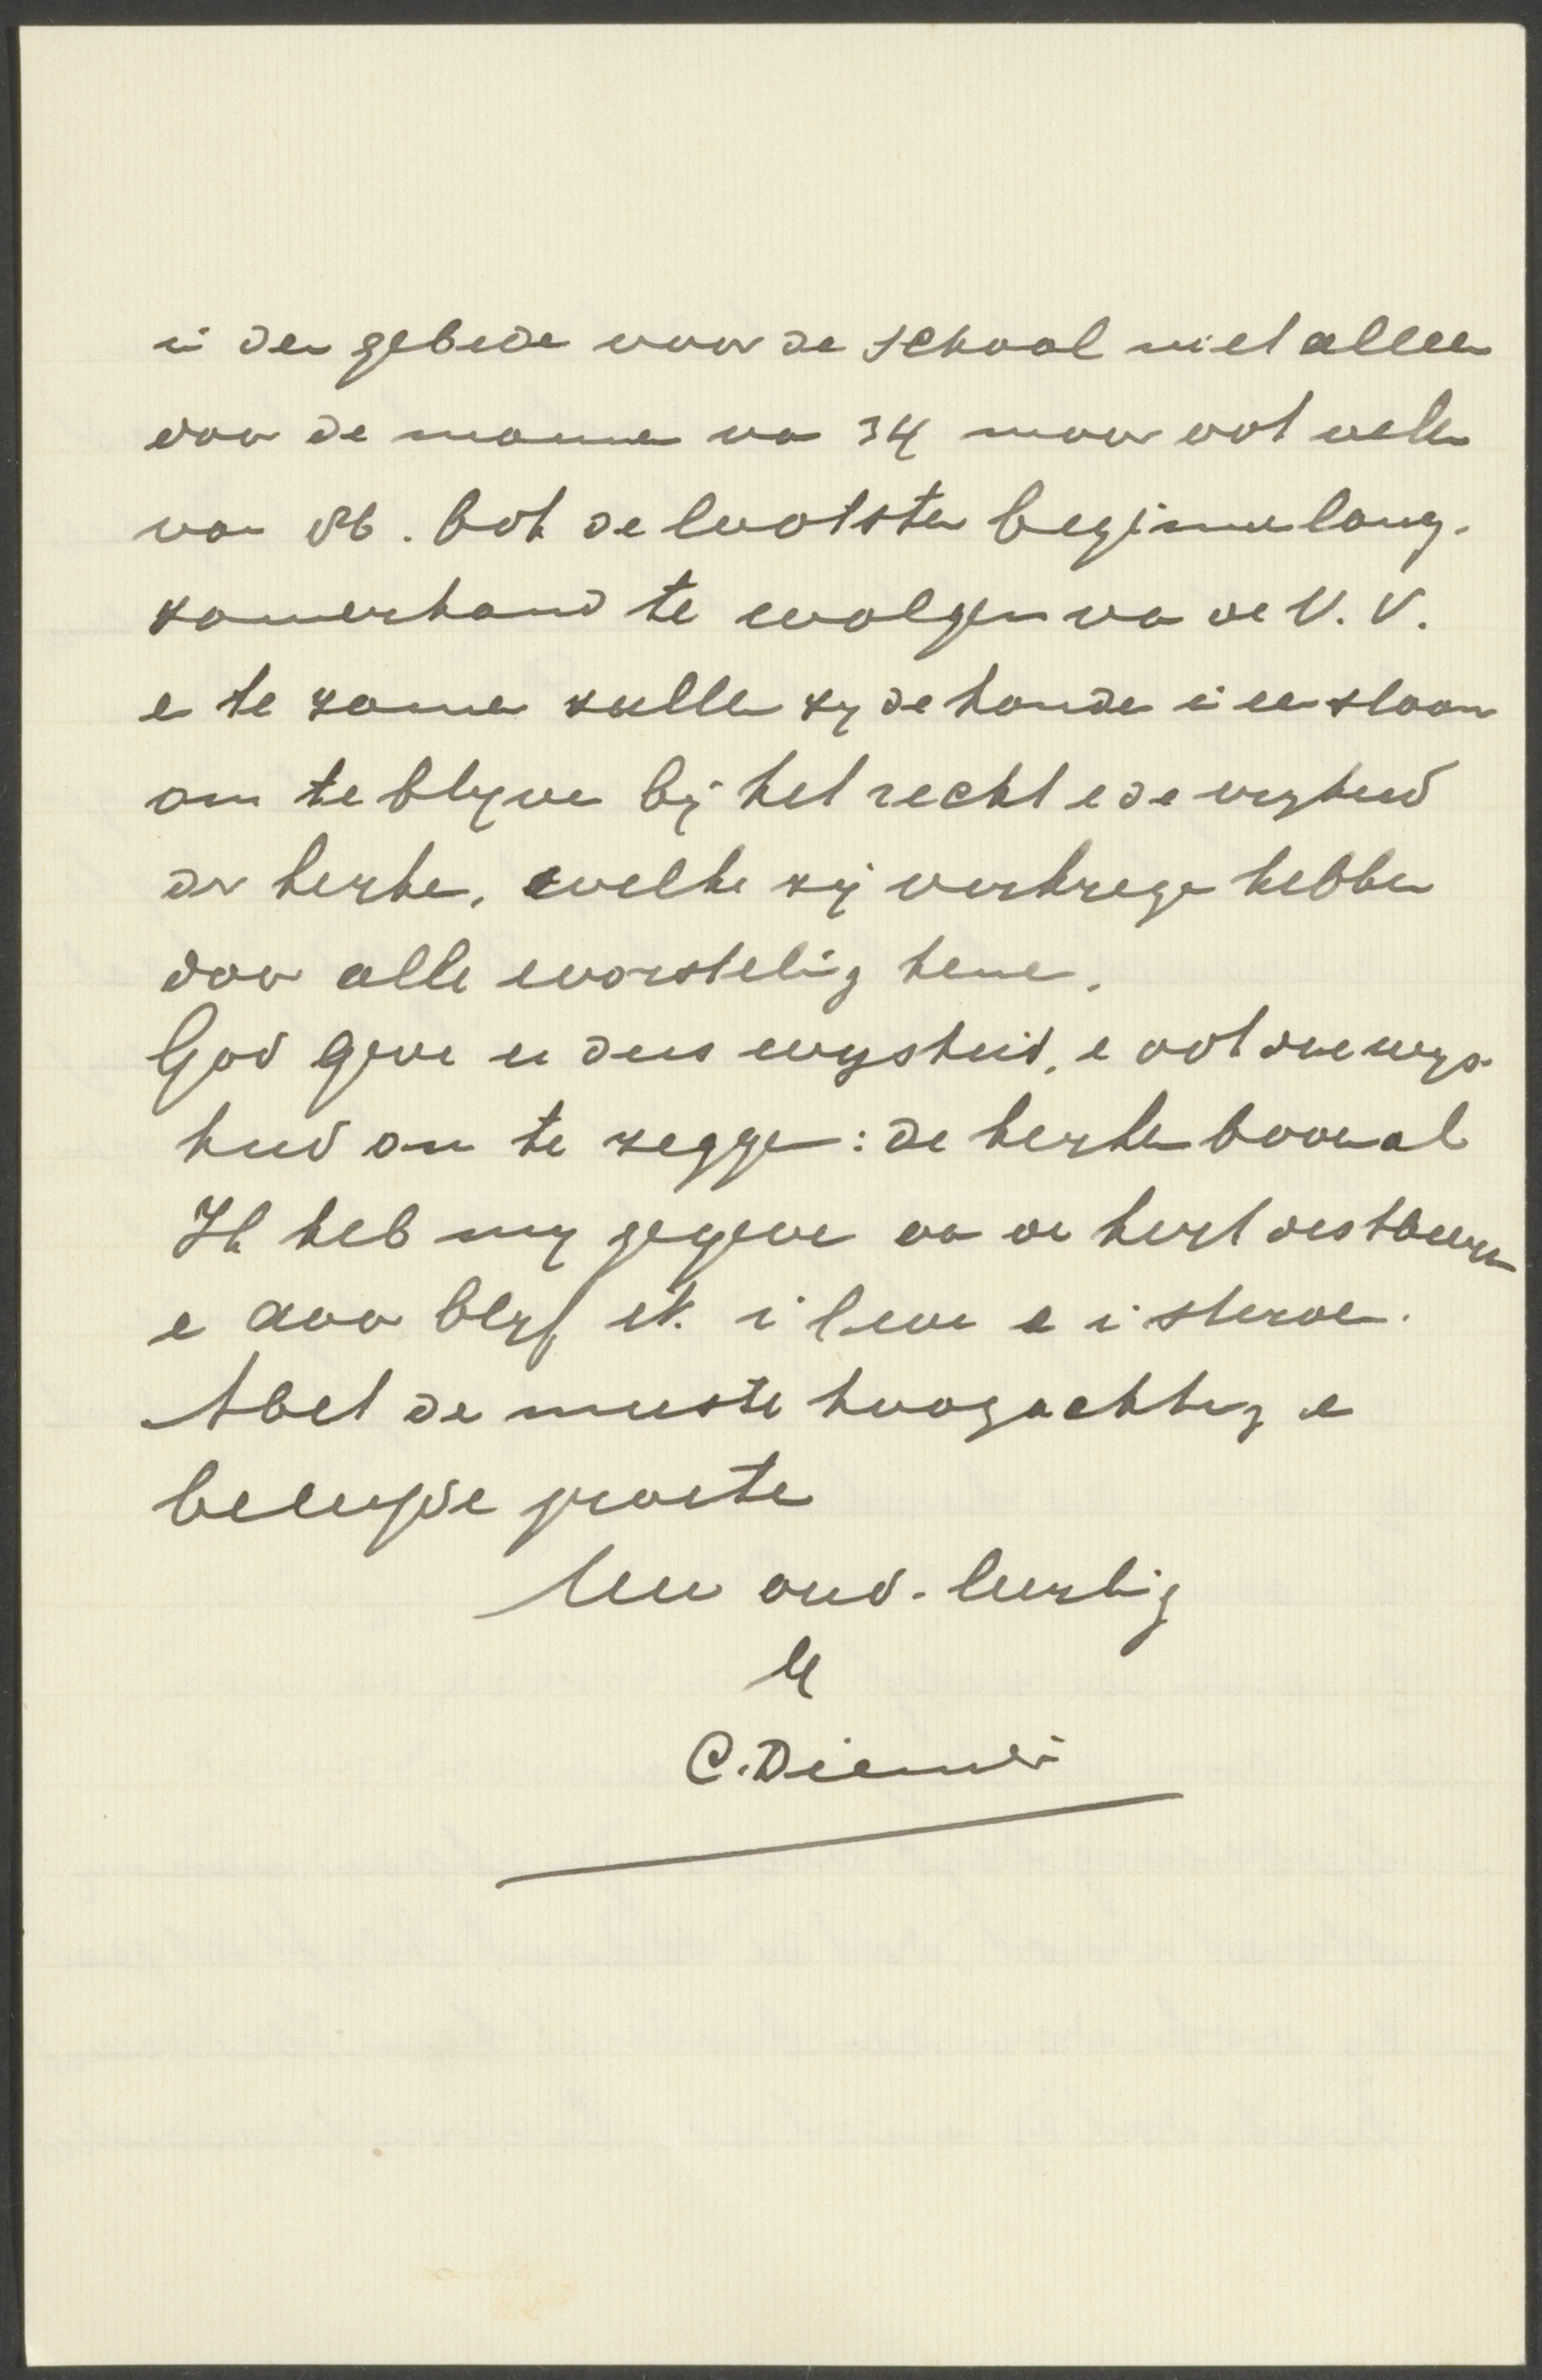 in den gebede voor de school niet alleen
door de mannen van 34 maar ook velen
van 86. Ook de laatsten beginnen lang-
zamerhand te walgen van de V. V.
en te zamen zullen zij de handen in een slaan
om te blijven bij het recht en de vrijheid
der kerke, welke zij verkregen hebben
door alle worsteling hene.
God geve u dus wijsheid, en ook die wijs-
heid om te zeggen: de kerke bovenal
Ik heb mij gegeven aan de kerk des Heeren
en daar blijf ik in leven en in sterven.
Met de meeste hoogachting en
beleefde groete
Uw oud-leerling
C. Diemer